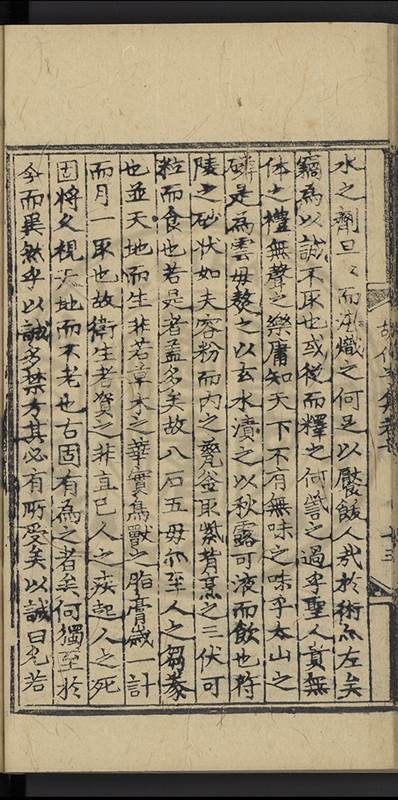 水之劑旦〻而湛熾之何足以饜飯人哉於術亦左矣
竊為以誠不取也或從而釋之何訾之過乎聖人貴無
体之禮無聲之樂庸知天下不有無味之味乎太山之
磷是為雲毋熬之以玄水漬之以秋露可液而飲也符
陵之砂状如夫容粉而内之甕谷取紫背烹之三伏可
粒而食也若是者孟多矣故八石五毋亦至人之芻豢
也並天地而生非若草木之華實鳥獸之脂膏歳一計
而月一取也故衛生者資之非直已人之疾起人之死
固将久視天地而不老也古固有為之者矣何獨至於
今而異然乎以誠多禁方其必有所愛矣以誠曰允若